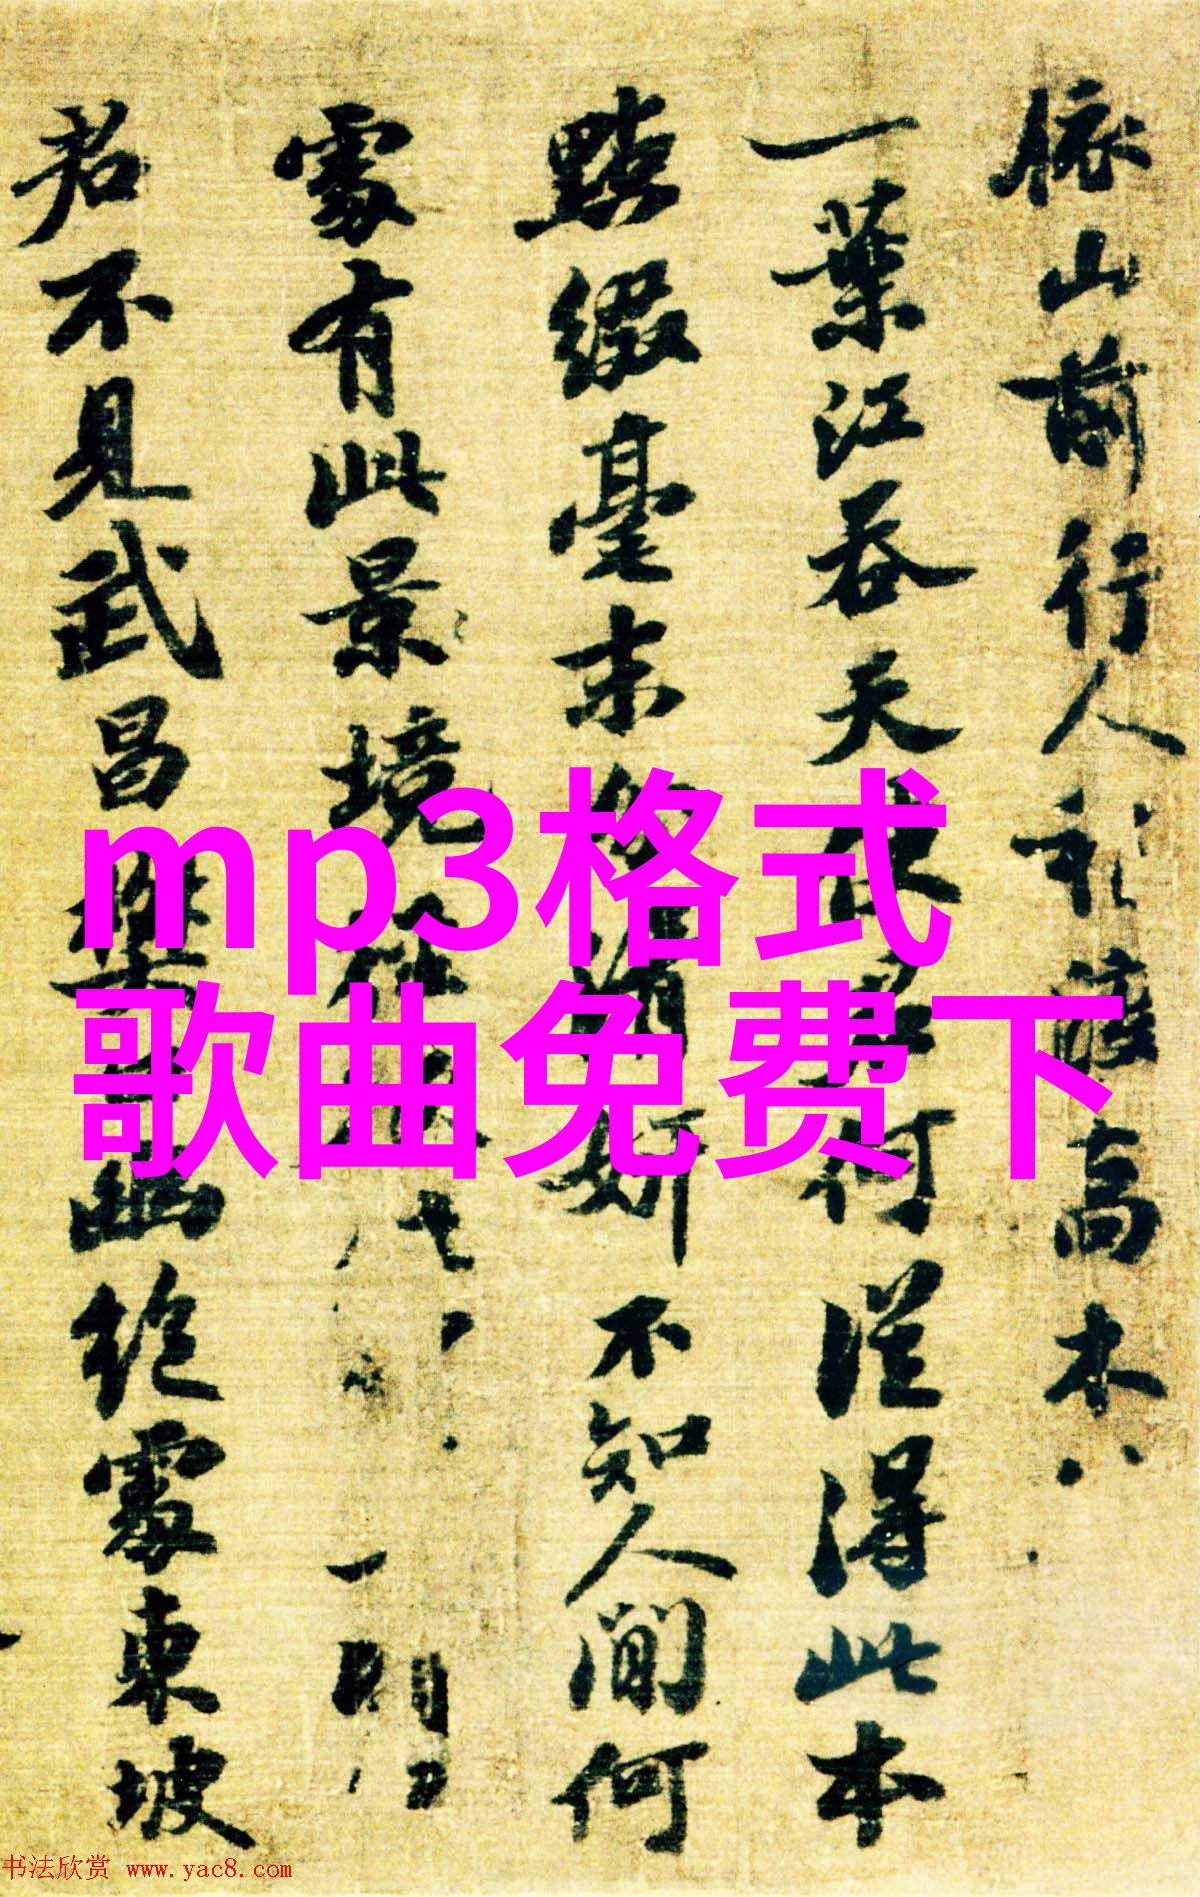 依山前行人渡高木
一葉江吞天使何從得此本
點綴毫末清妍不知人間何
處有此景境
君不見武昌樊幽絕處東坡
mp3格式
歌曲免费下
书法欣赏 www.yac8.com